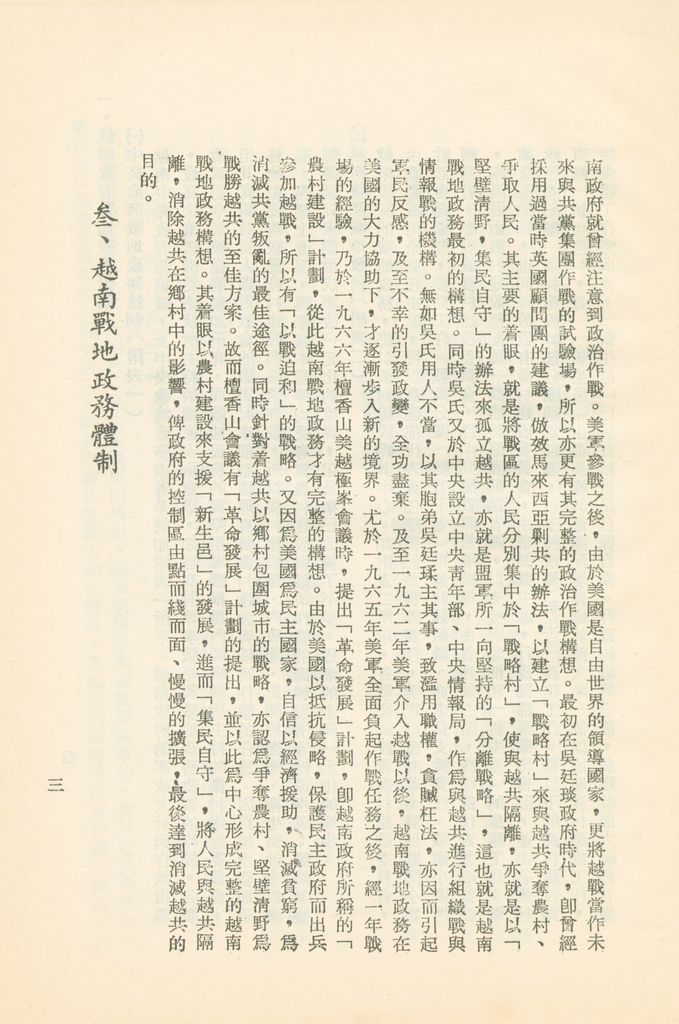 南政府就曾經注意到政治作戰。美軍參戰之後,由於美國是自由世界的領導國家,更將越戰當作未
來與共黨集團作戰的試驗場,所以亦更有其完整的政治作戰構想。最初在吳廷琰政府時代,卽曾經
採用過當時英國顧問團的建議,倣效馬來西亞剿共的辦法,以建立「戰略村」來與越共爭奪農村、
爭取人民。其主要的着眼,就是將戰區的人民分別集中於「戰略村」,使與越共隔離,亦就是以「
堅壁淸野,集民自守」的辦法來孤立越共,亦就是盟軍所一向堅持的「分離戰略」,這也就是越南
戰地政務最初的構想。同時吳氏又於中央設立中央靑年部、中央情報局,作爲與越共進行組織戰與
情報戰的機構。無如吳氏用人不當,以其胞弟吳廷瑈主其事,致濫用職權,貪贓枉法,亦因而引起
軍民反感,及至不幸的引發政變,全功盡棄。及至一九六二年美軍介入越戰以後,越南戰地政務在
美國的大力協助下,才逐漸步入新的境界。尤於一九六五年美軍全面負起作戰任務之後,經一年戰
場的經驗,乃於一九六六年檀香山美越極峯會議時,提出「革命發展」計劃,卽越南政府所稱的「
農村建設」計劃,從此越南戰地政務才有完整的構想。由於美國以抵抗侵略,保護民主政府而出兵
參加越戰,所以有「以戰迫和」的戰略。又因爲美國爲民主國家,自信以經濟援助,消滅貧窮,爲
消滅共黨叛亂的最佳途徑。同時針對着越共以鄉村包圍城市的戰略,亦認爲爭奪農村、堅壁淸野爲
戰勝越共的至佳方案。故而檀香山會議有「革命發展」計劃的提出,並以此爲中心形成完整的越南
戰地政務構想。其着眼以農村建設來支援「新生邑」的發展,進而「集民自守」,將人民與越共隔
離,消除越共在鄉村中的影響,俾政府的控制區由點而綫而面、慢慢的擴張,最後達到消滅越共的
目的。
叁、越南戰地政務體制
三